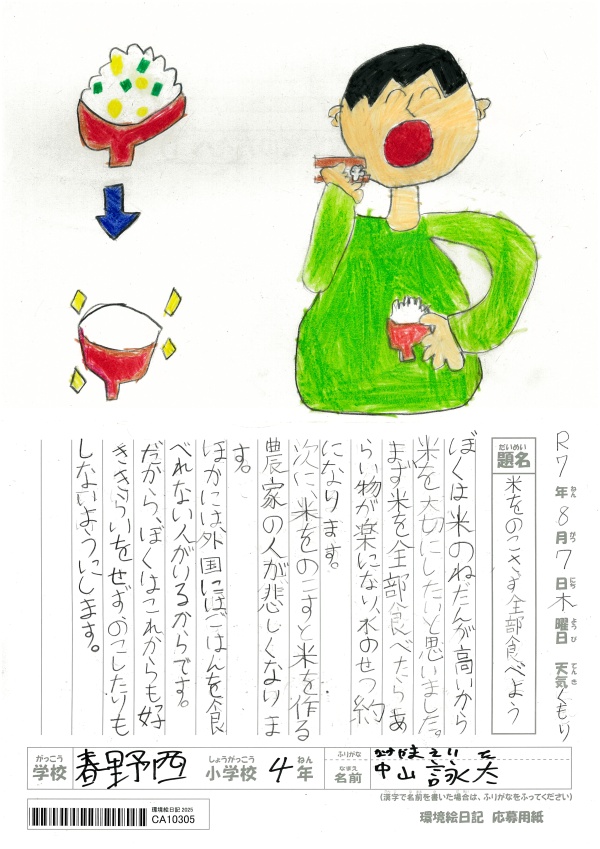 R7年8月7日木曜日 天気くもり
ねん がつ にち ようび てんき
だいめい
題名
米をのこさず全部食べよう
ぼくは米のねだんが高いから
米を大切にしたいと思いました。
まず米を全部食べたらあ
らい物が楽になり、水のせつ約
になります。
次に、米をのこすと米を作る
農家の人が悲しくなりま
す。
ほかには外国にはごはんを食
べれない人がいるからです。
だから、ぼくはこれからも好
ききらいをせず、のこしたりも
しないようにします。
がっこう しょうがっこう ねん
学校 春野西 小学校 4年
ふりがな なかやま えいた
なまえ
名前 中山 詠太
(漢字で名前を書いた場合は、ふりがなをふってください)
環境絵日記 2025
CA10305
環境絵日記 応募用紙